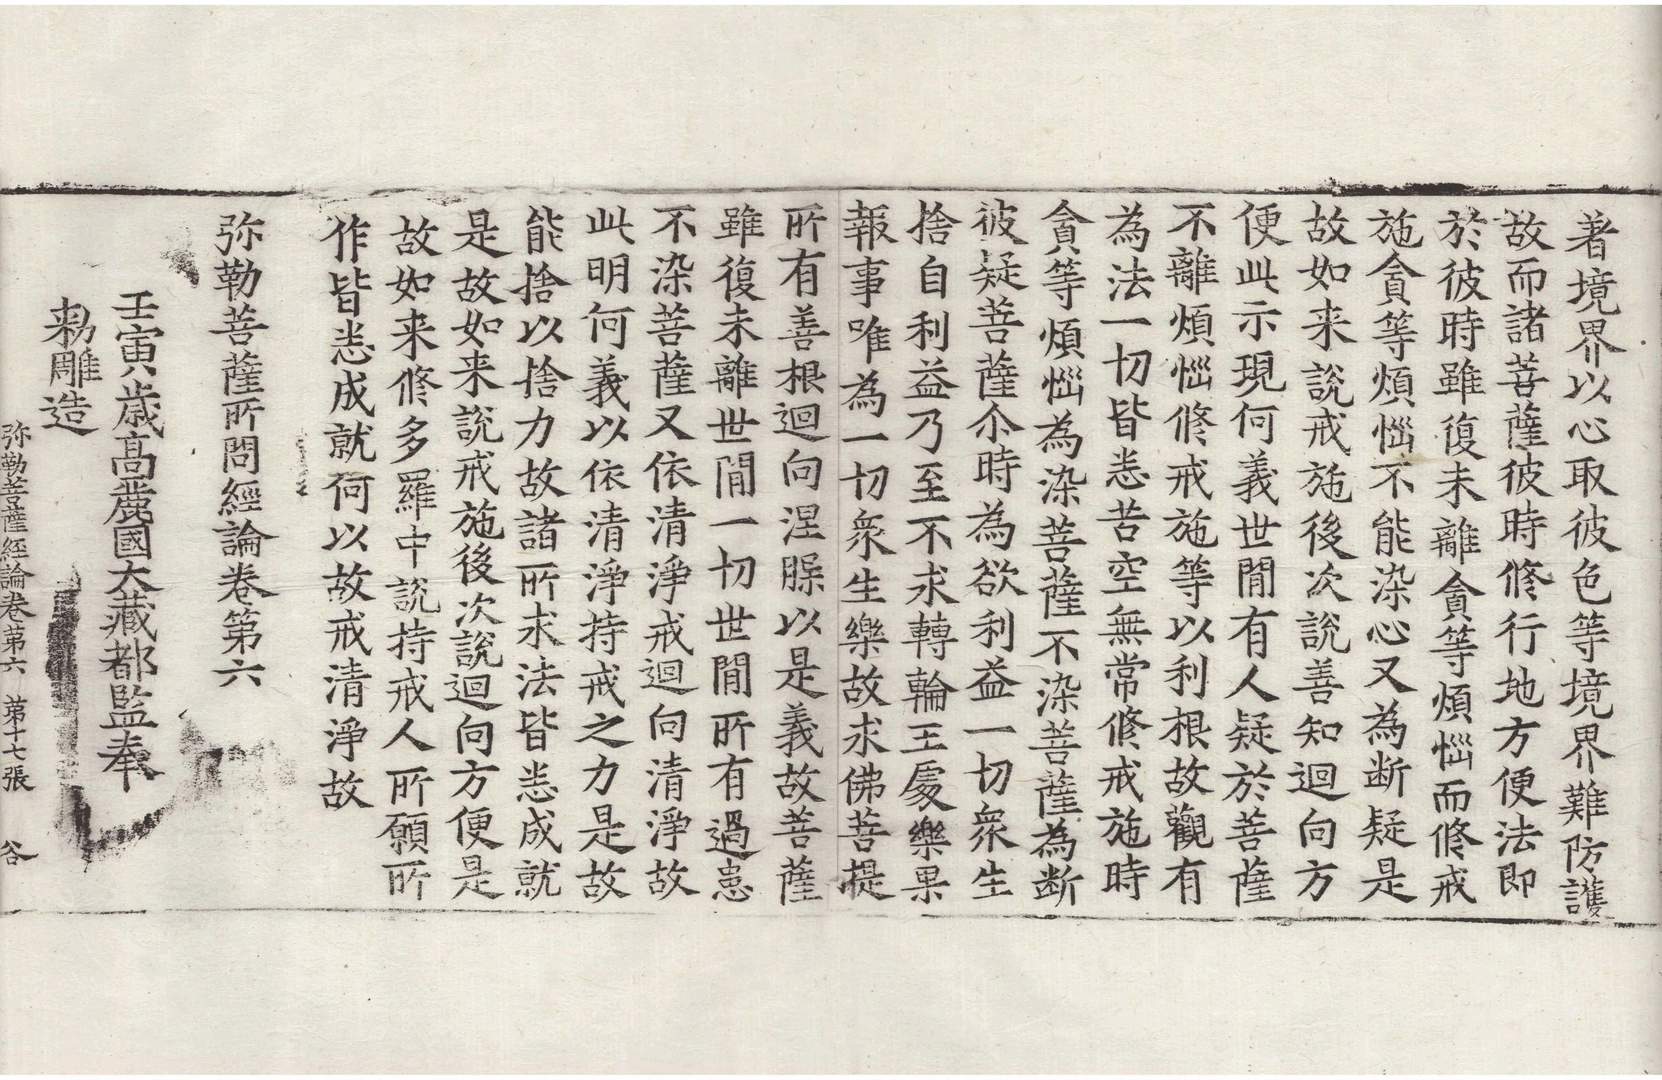 著境界以心取彼色等境界難防護
故而諸菩薩彼時修行地方便法即
於彼時雖復未離貪等煩惱而修戒
施貪等煩惱不能染心又為断疑是
故如来說戒施後次說善知迴向方
便此示現何義世閒有人疑於菩薩
不離煩惱修戒施等以利根故觀有
為法一切皆悉苦空無常修戒施時
貪等煩惱為染菩薩不染菩薩為断
彼疑菩薩尒時為欲利益一切衆生
捨自利益乃至不求轉輪王處樂果
報事唯為一切衆生樂故求佛菩提
所有善根迴向涅槃以是義故菩薩
雖復未離世閒一切世閒所有過患
不染菩薩又依清淨戒迴向清淨故
此明何義以依清淨持戒之力是故
能捨以捨力故諸所求法皆悉成就
是故如来說戒施後次說迴向方便是
故如来修多羅中說持戒人所願所
作皆悉成就何以故戒清淨故
弥勒菩薩所問經論卷第六
壬寅歲高麗國大藏都監奉
勑雕造
弥勒菩薩經論卷第六 第十七張 谷